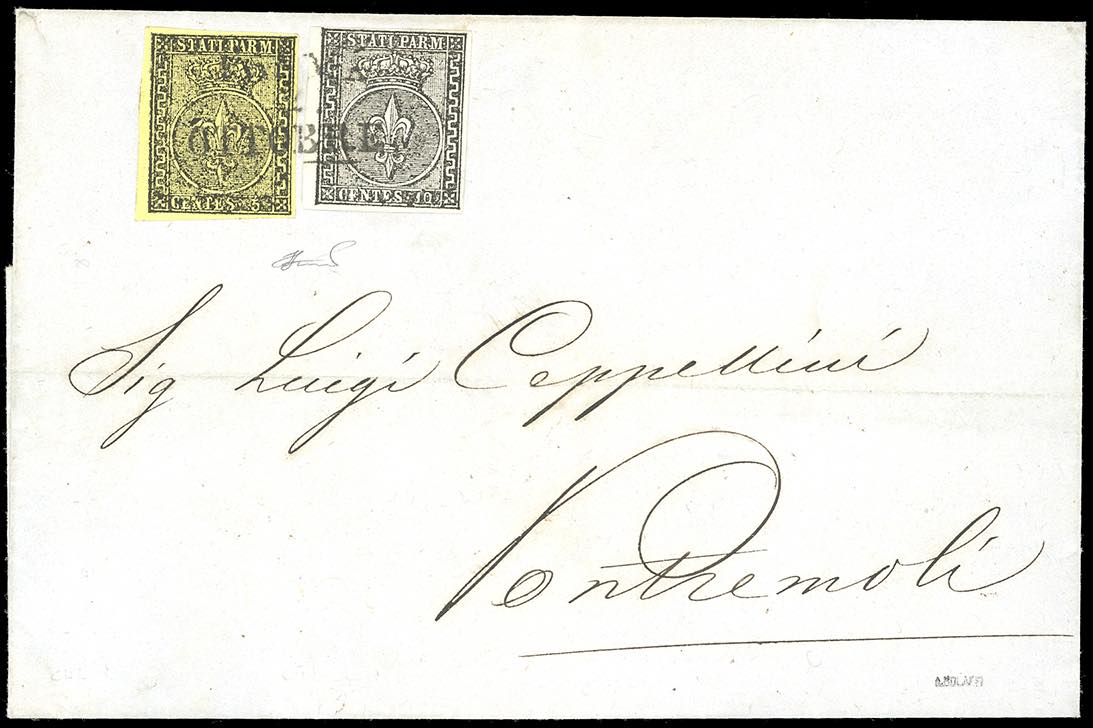 STATI PARM
CENTES. 5
STATI PARM
CENTES. 10
OTTOBRE
Sig Luigi Cappellini
Pontremoli